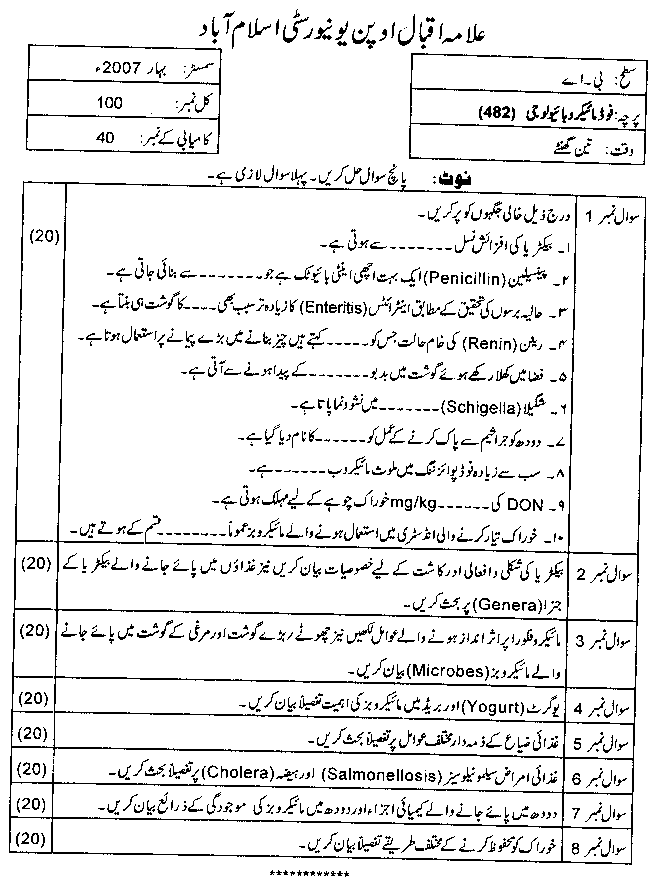 علامہ اقبال اوپن یونیورسٹی اسلام آباد
سطح: بی۔اے
پرچہ: فوڈ مائیکروبائیولوجی (482)
وقت: تین گھنٹے
سمسٹر: بہار 2007ء
کل نمبر: 100
کامیابی کے نمبر: 40
نوٹ: پانچ سوال حل کریں۔ پہلا سوال لازمی ہے۔
سوال نمبر 1 درج ذیل خالی جگہوں کو پُر کریں۔ (20)
۱۔ بیکٹریا کی افزائش نسل ۔۔۔۔۔۔۔ سے ہوتی ہے۔
۲۔ پینسیلین (Penicillin) ایک بہت اچھی اینٹی بائیوٹک ہے جو ۔۔۔۔۔۔۔۔ سے بنائی جاتی ہے۔
۳۔ حالیہ برسوں کی تحقیق کے مطابق اینٹرائٹس (Enteritis) کا زیادہ تر سبب بھی ۔۔۔۔ کا گوشت ہی بنتا ہے۔
۴۔ رینن (Renin) کی خام حالت جس کو ۔۔۔۔۔ کہتے ہیں چیز بنانے میں بڑے پیمانے پر استعمال ہوتا ہے۔
۵۔ فضا میں کھلا رکھے ہوئے گوشت میں بدبو ۔۔۔۔۔۔۔ کے پیدا ہونے سے آتی ہے۔
۶۔ شگیلا (Schigella) ۔۔۔۔۔۔۔ میں نشوونما پاتا ہے۔
۷۔ دودھ کو جراثیم سے پاک کرنے کے عمل کو ۔۔۔۔۔۔۔ کا نام دیا گیا ہے۔
۸۔ سب سے زیادہ فوڈ پوائزننگ میں ملوث مائیکروب ۔۔۔۔۔۔۔ ہے۔
۹۔ DON کی ۔۔۔۔۔۔ mg/kg خوراک چوہے کے لیے مہلک ہوتی ہے۔
۱۰۔ خوراک تیار کرنے والی انڈسٹری میں استعمال ہونے والے مائیکروبز عموماً ۔۔۔۔۔۔۔۔ قسم کے ہوتے ہیں۔
سوال نمبر 2 بیکٹریا کی شکلی و افعالی اور کاشت کے لیے خصوصیات بیان کریں نیز غذاؤں میں پائے جانے والے بیکٹریا کے (20)
جنرا (Genera) پر بحث کریں۔
سوال نمبر 3 مائیکروفلورا پر اثر انداز ہونے والے عوامل لکھیں نیز چھوٹے / بڑے گوشت اور مرغی کے گوشت میں پائے جانے (20)
والے مائیکروبز (Microbes) بیان کریں۔
سوال نمبر 4 یوگرٹ (Yogurt) اور بریڈ میں مائیکروبز کی اہمیت تفصیلاً بیان کریں۔ (20)
سوال نمبر 5 غذائی ضیاع کے ذمہ دار مختلف عوامل پر تفصیلاً بحث کریں۔ (20)
سوال نمبر 6 غذائی امراض سیلمونیلوسیز (Salmonellosis) اور ہیضہ (Cholera) پر تفصیلاً بحث کریں۔ (20)
سوال نمبر 7 دودھ میں پائے جانے والے کیمیائی اجزاء اور دودھ میں مائیکروبز کی موجودگی کے ذرائع بیان کریں۔ (20)
سوال نمبر 8 خوراک کو محفوظ کرنے کے مختلف طریقے تفصیلاً بیان کریں۔ (20)
************